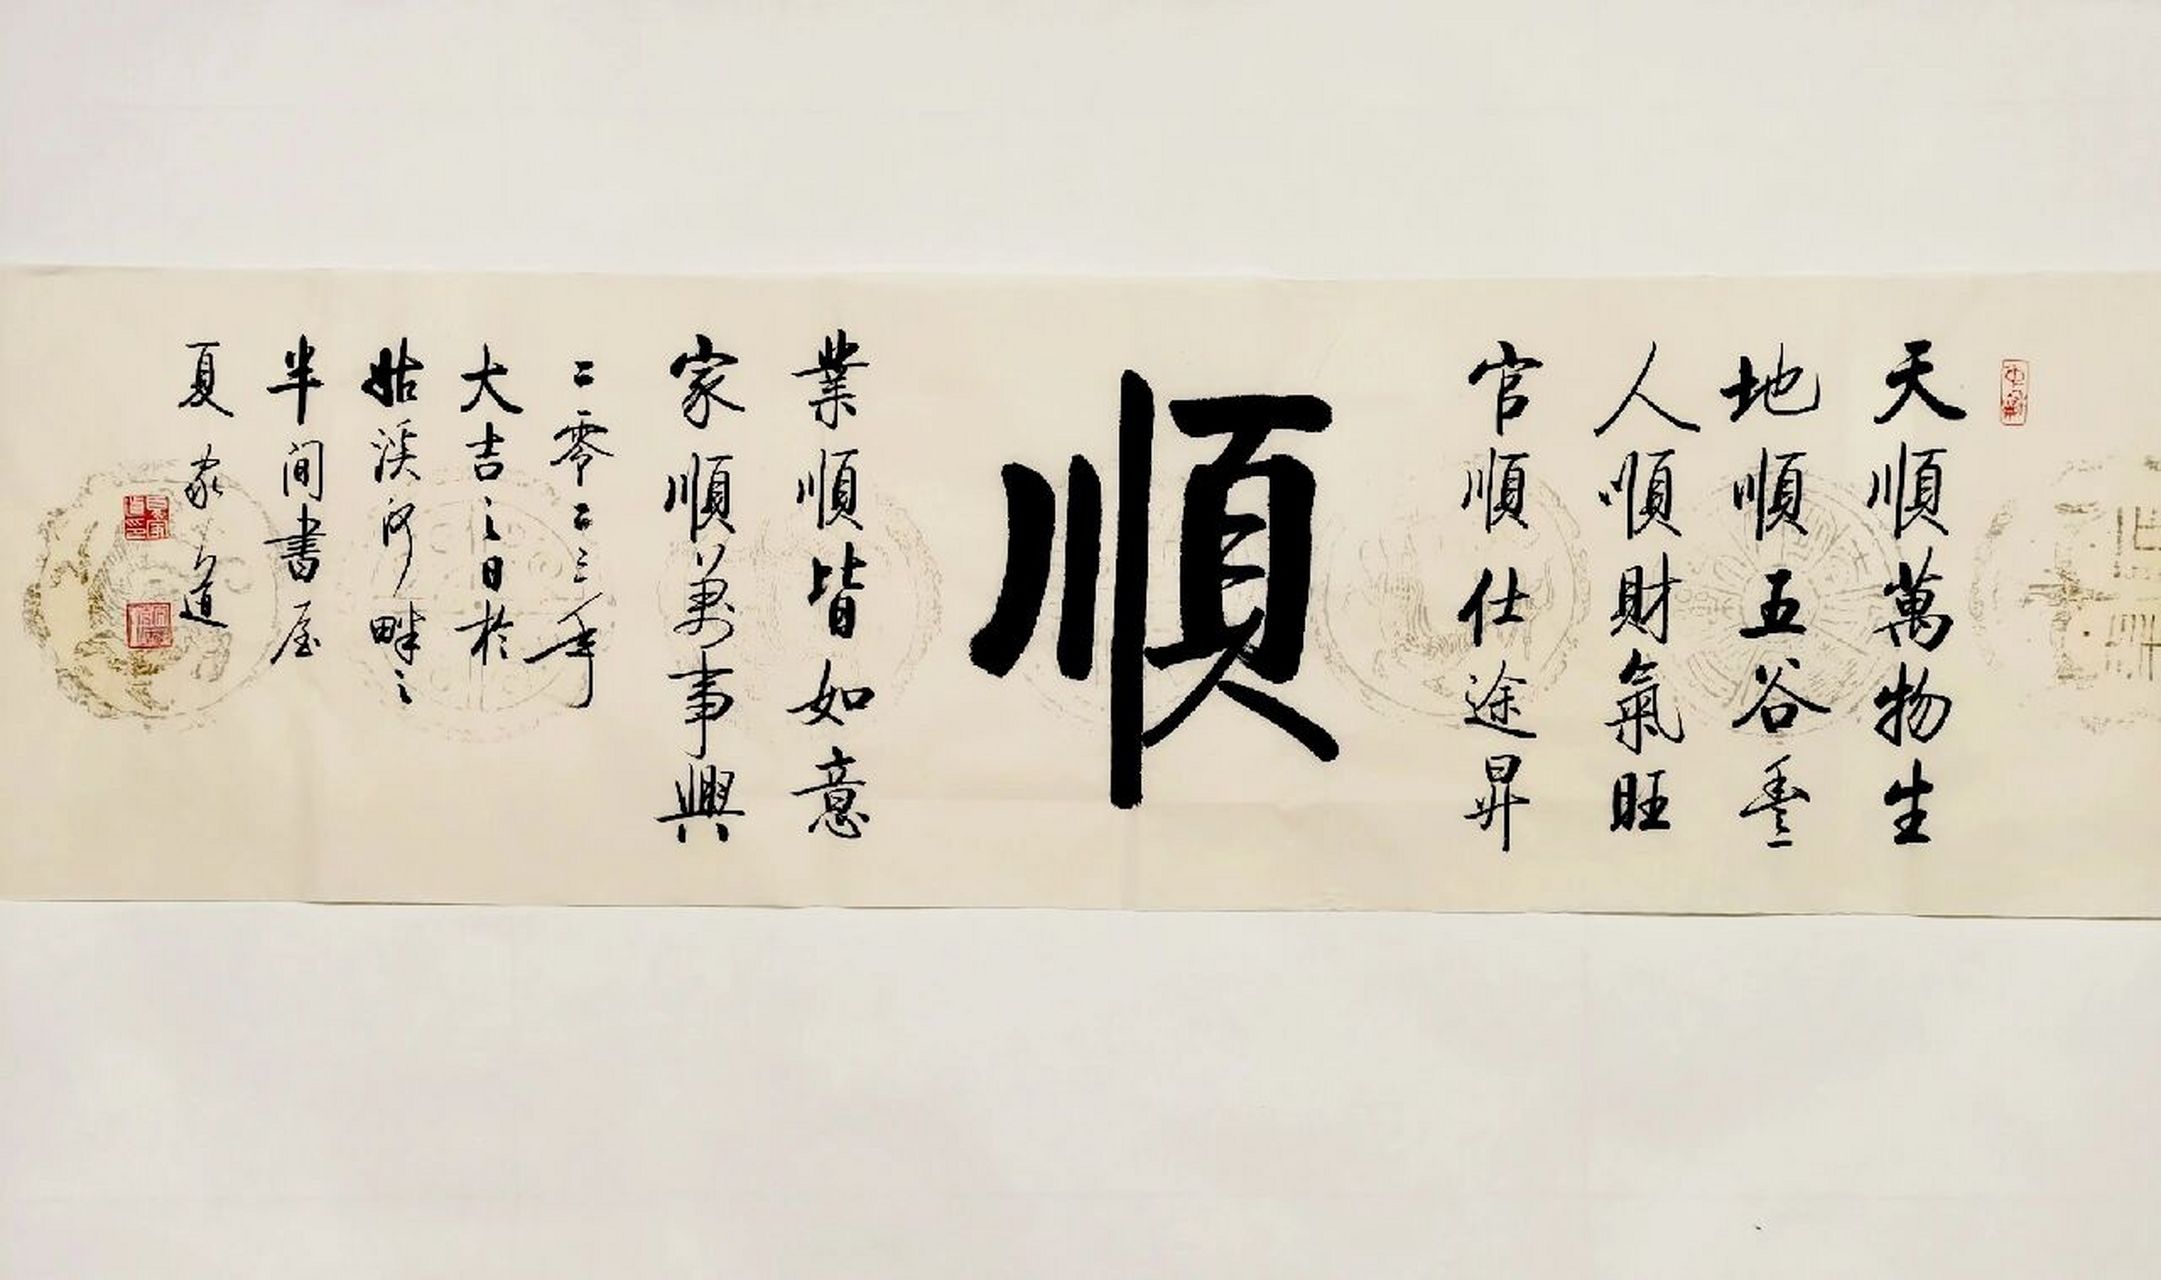 天順萬物生
地順五谷豐
人順財氣旺
官順仕途昇
順
業順皆如意
家順萬事興
二零二三年
大吉之日於
姑溪河畔之
半間書屋
夏家道